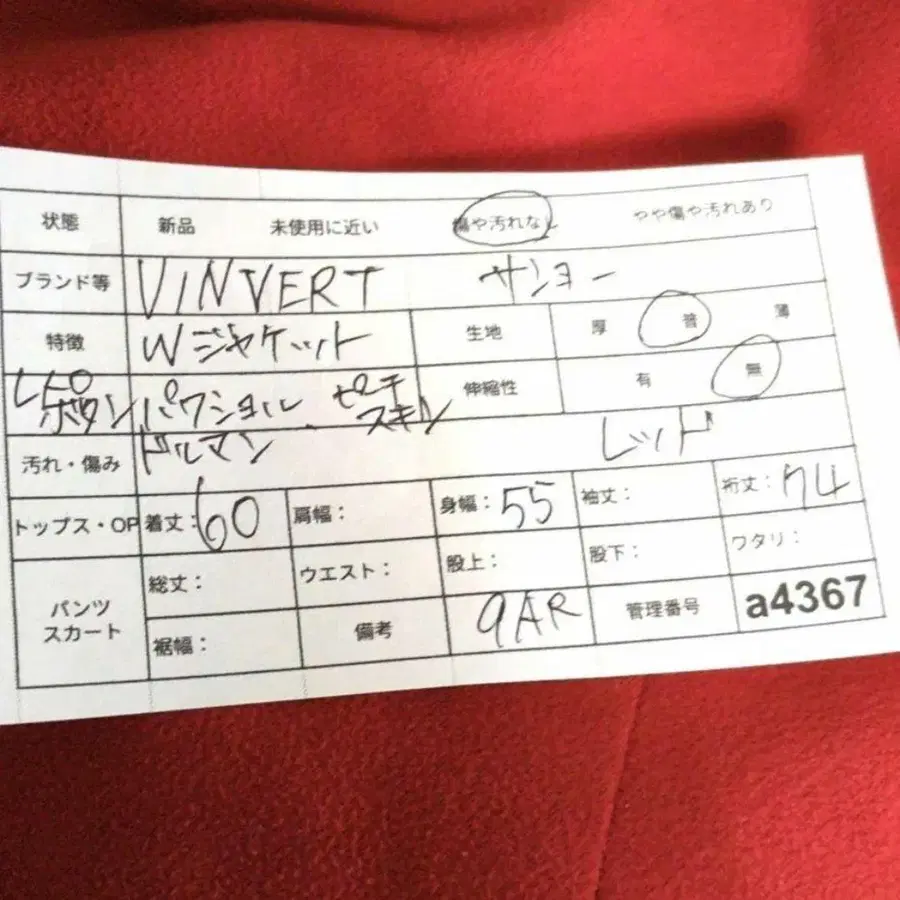 状態 新品 未使用に近い 傷や汚れなし やや傷や汚れあり
ブランド等 VINVERT サンヨー
特徴 Wジャケット 生地 厚 普 薄
ボタン パワショル ピーチスキン 伸縮性 有 無
汚れ・傷み ドルマン レッド
トップス・OP 着丈:60 肩幅: 身幅:55 袖丈: 裄丈:74
パンツ スカート 総丈: ウエスト: 股上: 股下: ワタリ:
裾幅: 備考 9AR 管理番号 a4367